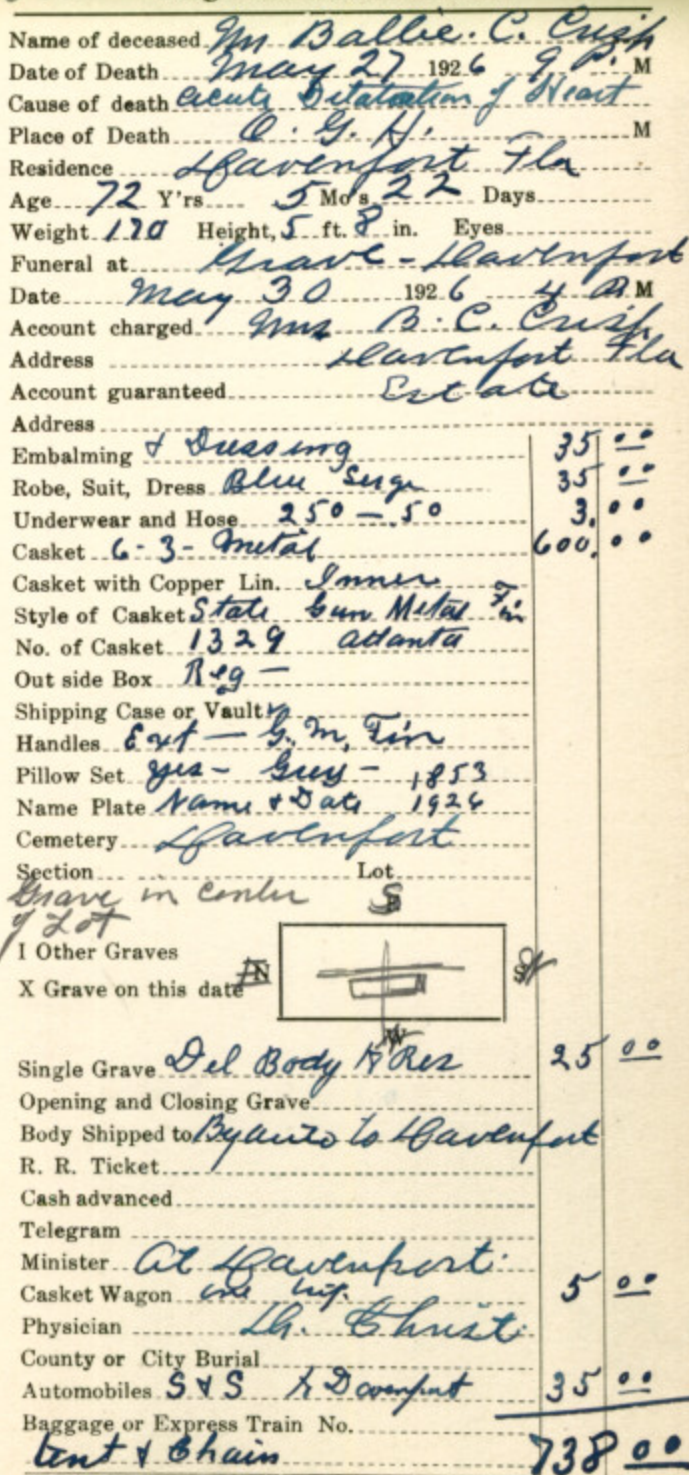 Name of deceased Mr Ballie. C. Crisp
Date of Death May 27 1926 9 P. M
Cause of death Acute Dilatation of Heart
Place of Death O. G. H. M
Residence Davenport Fla
Age 72 Y'rs 5 Mo's 22 Days
Weight 170 Height, 5 ft. 8 in. Eyes
Funeral at Grave - Davenport
Date May 30 1926 4 P M
Account charged Mrs B. C. Crisp
Address Davenport Fla
Account guaranteed Estate
Address
Embalming & Dressing 35 00
Robe, Suit, Dress Blue Serge 35 00
Underwear and Hose 250 - 50 3.00
Casket 6-3- Metal 600.00
Casket with Copper Lin. Inner
Style of Casket State Gun Metal Fin
No. of Casket 1329 Atlanta
Out side Box Reg -
Shipping Case or Vault
Handles Ext - G. M. Fin
Pillow Set Yes - Grey - 1853
Name Plate Name & Date 1926
Cemetery Davenport
Section Lot
Grave in center
of Lot
I Other Graves
X Grave on this date N S
W
Single Grave Del Body to Res 25 00
Opening and Closing Grave
Body Shipped to By auto to Davenport
R. R. Ticket
Cash advanced
Telegram
Minister At Davenport
Casket Wagon one trip. 5 00
Physician Dr. Christ
County or City Burial
Automobiles S & S to Davenport 35 00
Baggage or Express Train No.
Tent & Chain 738 00